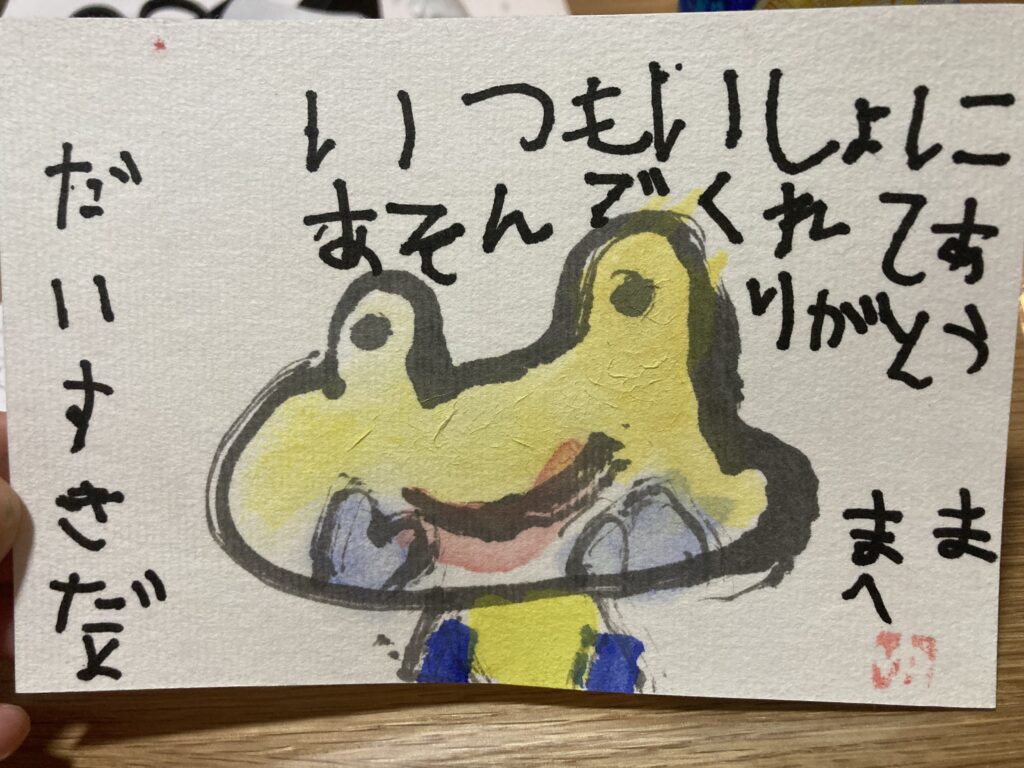 いつもいしょに
あそんでくれてあ
りがとう
ままへ
だいすきだよ